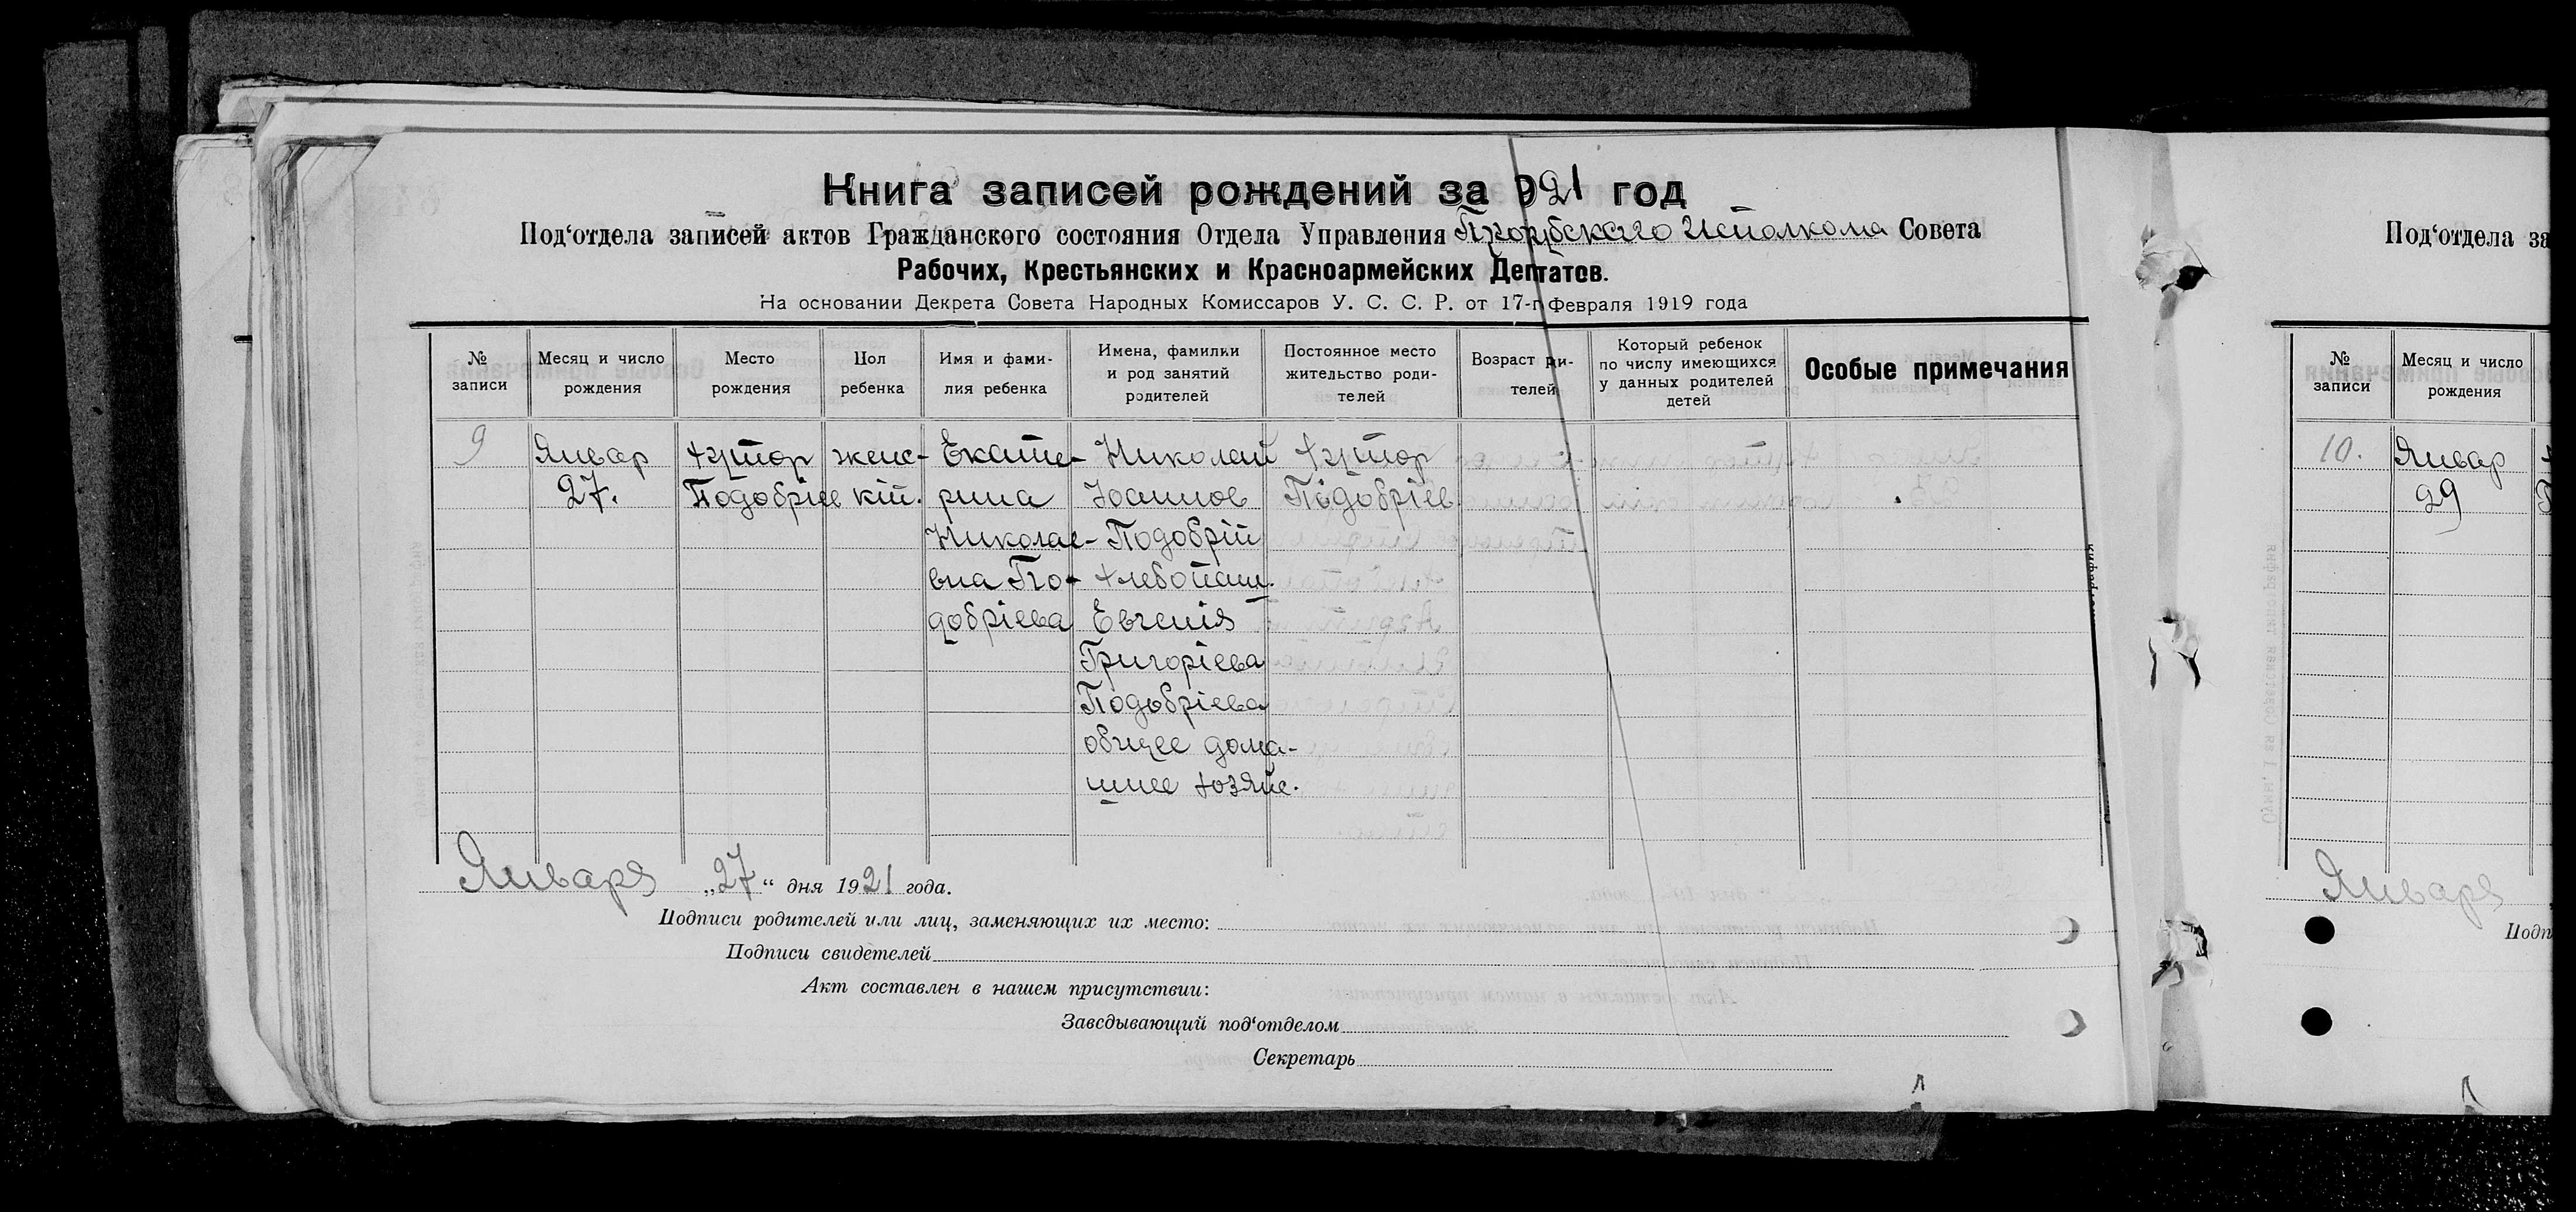 Книга записей рождений за 921 год
Под‘отдела записей актов Гражданского состояния Отдела Управления Исполкома Совета
Рабочих, Крестьянских и Красноармейских Депутатов.
На основании Декрета Совета Народных Комиссаров У. С. С. Р. от 17-г Февраля 1919 года
№ записи
Месяц и число рождения
Место рождения
Пол ребенка
Имя и фами-
лия ребенка
Имена, фамилии
и род занятий
родителей
Постоянное место
жительство роди-
телей
Возраст ро-
телей
Который ребенок
по числу имеющихся
у данных родителей
детей
Особые примечания
9
Январ
27.
хутор
Подобріев
женс-
кій.
Екате-
рина
Николае-
вна По-
добріева
Николай
Иоаннов
Подобрій
хлебопаш.
Евгенія
Григоріева
Подобріева
общее дома-
шнее хозяйс.
хутор
Подобріев
Января „27“ дня 1921 года.
Подписи родителей или лиц, заменяющих их место:
Подписи свидетелей
Акт составлен в нашем присутствии:
Заведывающий под‘отделом
Секретарь
Под‘отдела за
№ записи
Месяц и число рождения
10.
Январ
29
Января
Подп